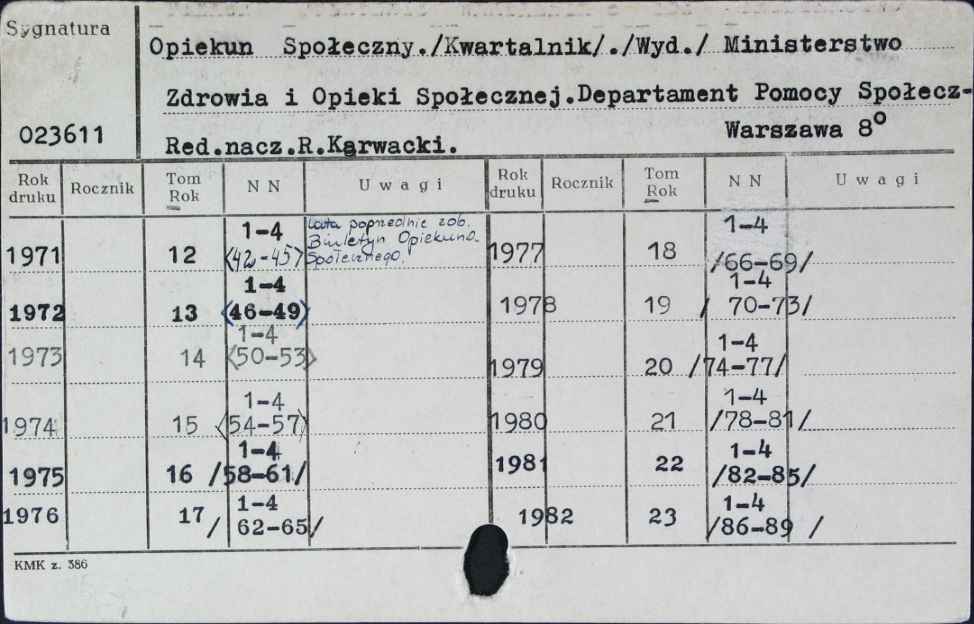 Sygnatura
Opiekun Społeczny./Kwartalnik/./Wyd./ Ministerstwo
Zdrowia i Opieki Społecznej.Departament Pomocy Społecz-
023611
Warszawa 8°
Red.nacz.R.Karwacki.
Rok druku Rocznik Tom Rok N N Uwagi Rok druku Rocznik Tom Rok N N Uwagi
1971 12 1-4 <42-45> Lata poprzednie zob. Biuletyn Opiekuna Społecznego. 1977 18 1-4 /66-69/
1972 13 1-4 <46-49> 1978 19 1-4 / 70-73/
1973 14 1-4 <50-53> 1979 20 1-4 /74-77/
1974 15 1-4 <54-57> 1980 21 1-4 /78-81/
1975 16 1-4 /58-61/ 1981 22 1-4 /82-85/
1976 17 1-4 / 62-65/ 1982 23 1-4 /86-89 /
KMK z. 386